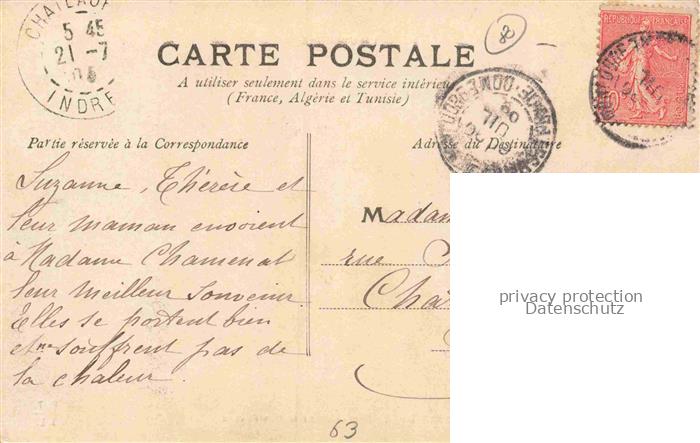 CHATEAUR
5 45
21 -7
INDRE
8
REPUBLIQUE FRANÇAISE
CARTE POSTALE
A utiliser seulement dans le service intérieu
(France, Algérie et Tunisie)
Partie réservée à la Correspondance
Adresse du Destinataire
Suzanne, Thérèse et
leur maman envoient
à Madame Chamenat
leur meilleur souvenir.
Elles se portent bien
et ne souffrent pas de
la chaleur.
Madam
rue
Châ
privacy protection
Datenschutz
63